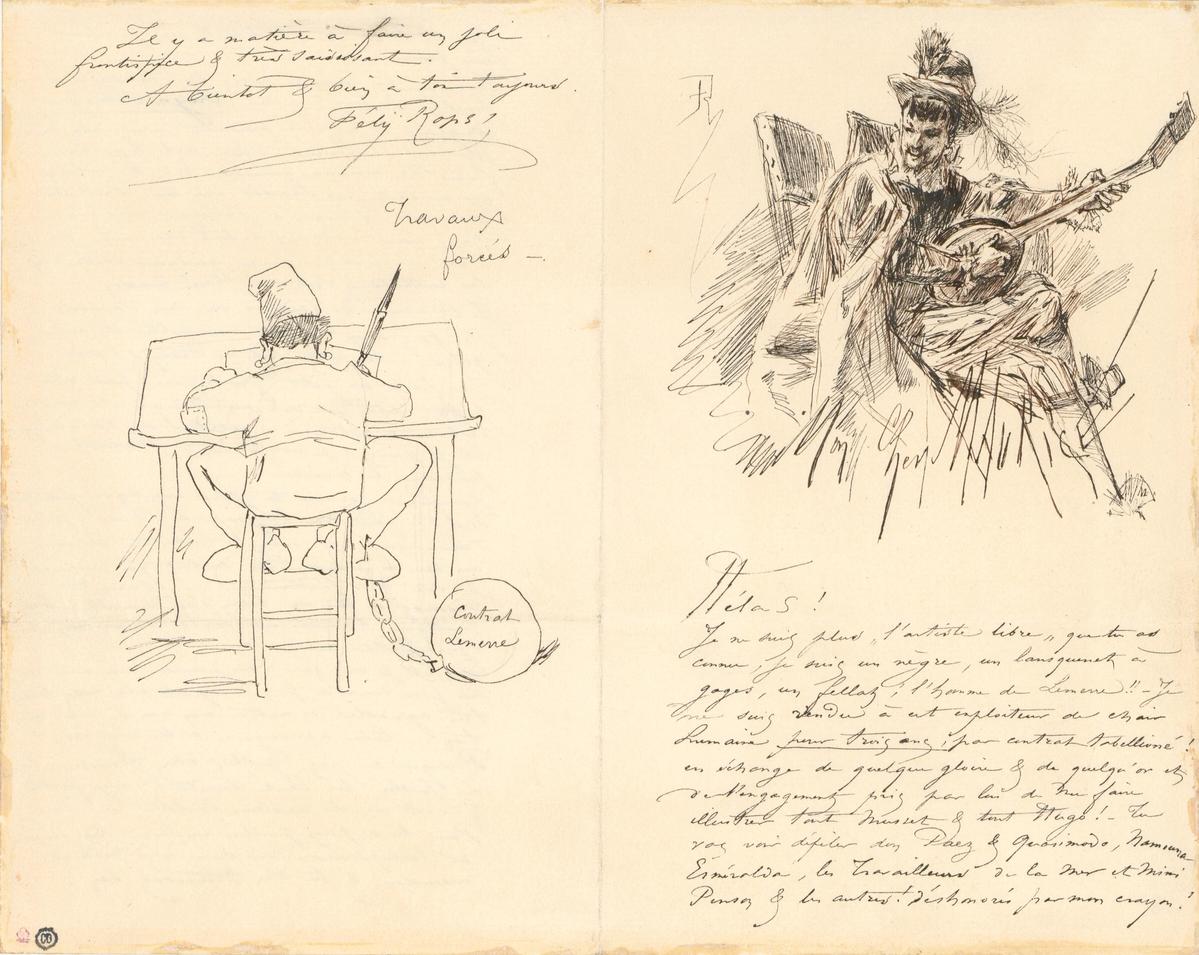 Il y a matière à faire un joli
frontispice & très saisissant.
A bientot & bien à toi toujours.
Fély Rops!
Travaux
forcés –
Contrat
Lemerre
FR
Mon Cher MAURICE
Hélas!
Je ne suis plus „l'artiste libre„ que tu as
connu, je suis un nègre, un lansquenet à
gages, un fellah; l'homme de Lemerre!! – Je
me suis vendu à cet exploiteur de chair
humaine pour trois ans, par contrat tabellioné!
en échange de quelque gloire & de quelqu'or et
de l'engagement pris par lui de me faire
illustrer tout Musset & tout Hugo! – Tu
vas voir défiler don Paez & Quasimodo, Namouna
Esméralda, les Travailleurs de la Mer et Mimi
Pinson & les autres! déshonorés par mon crayon!
CD